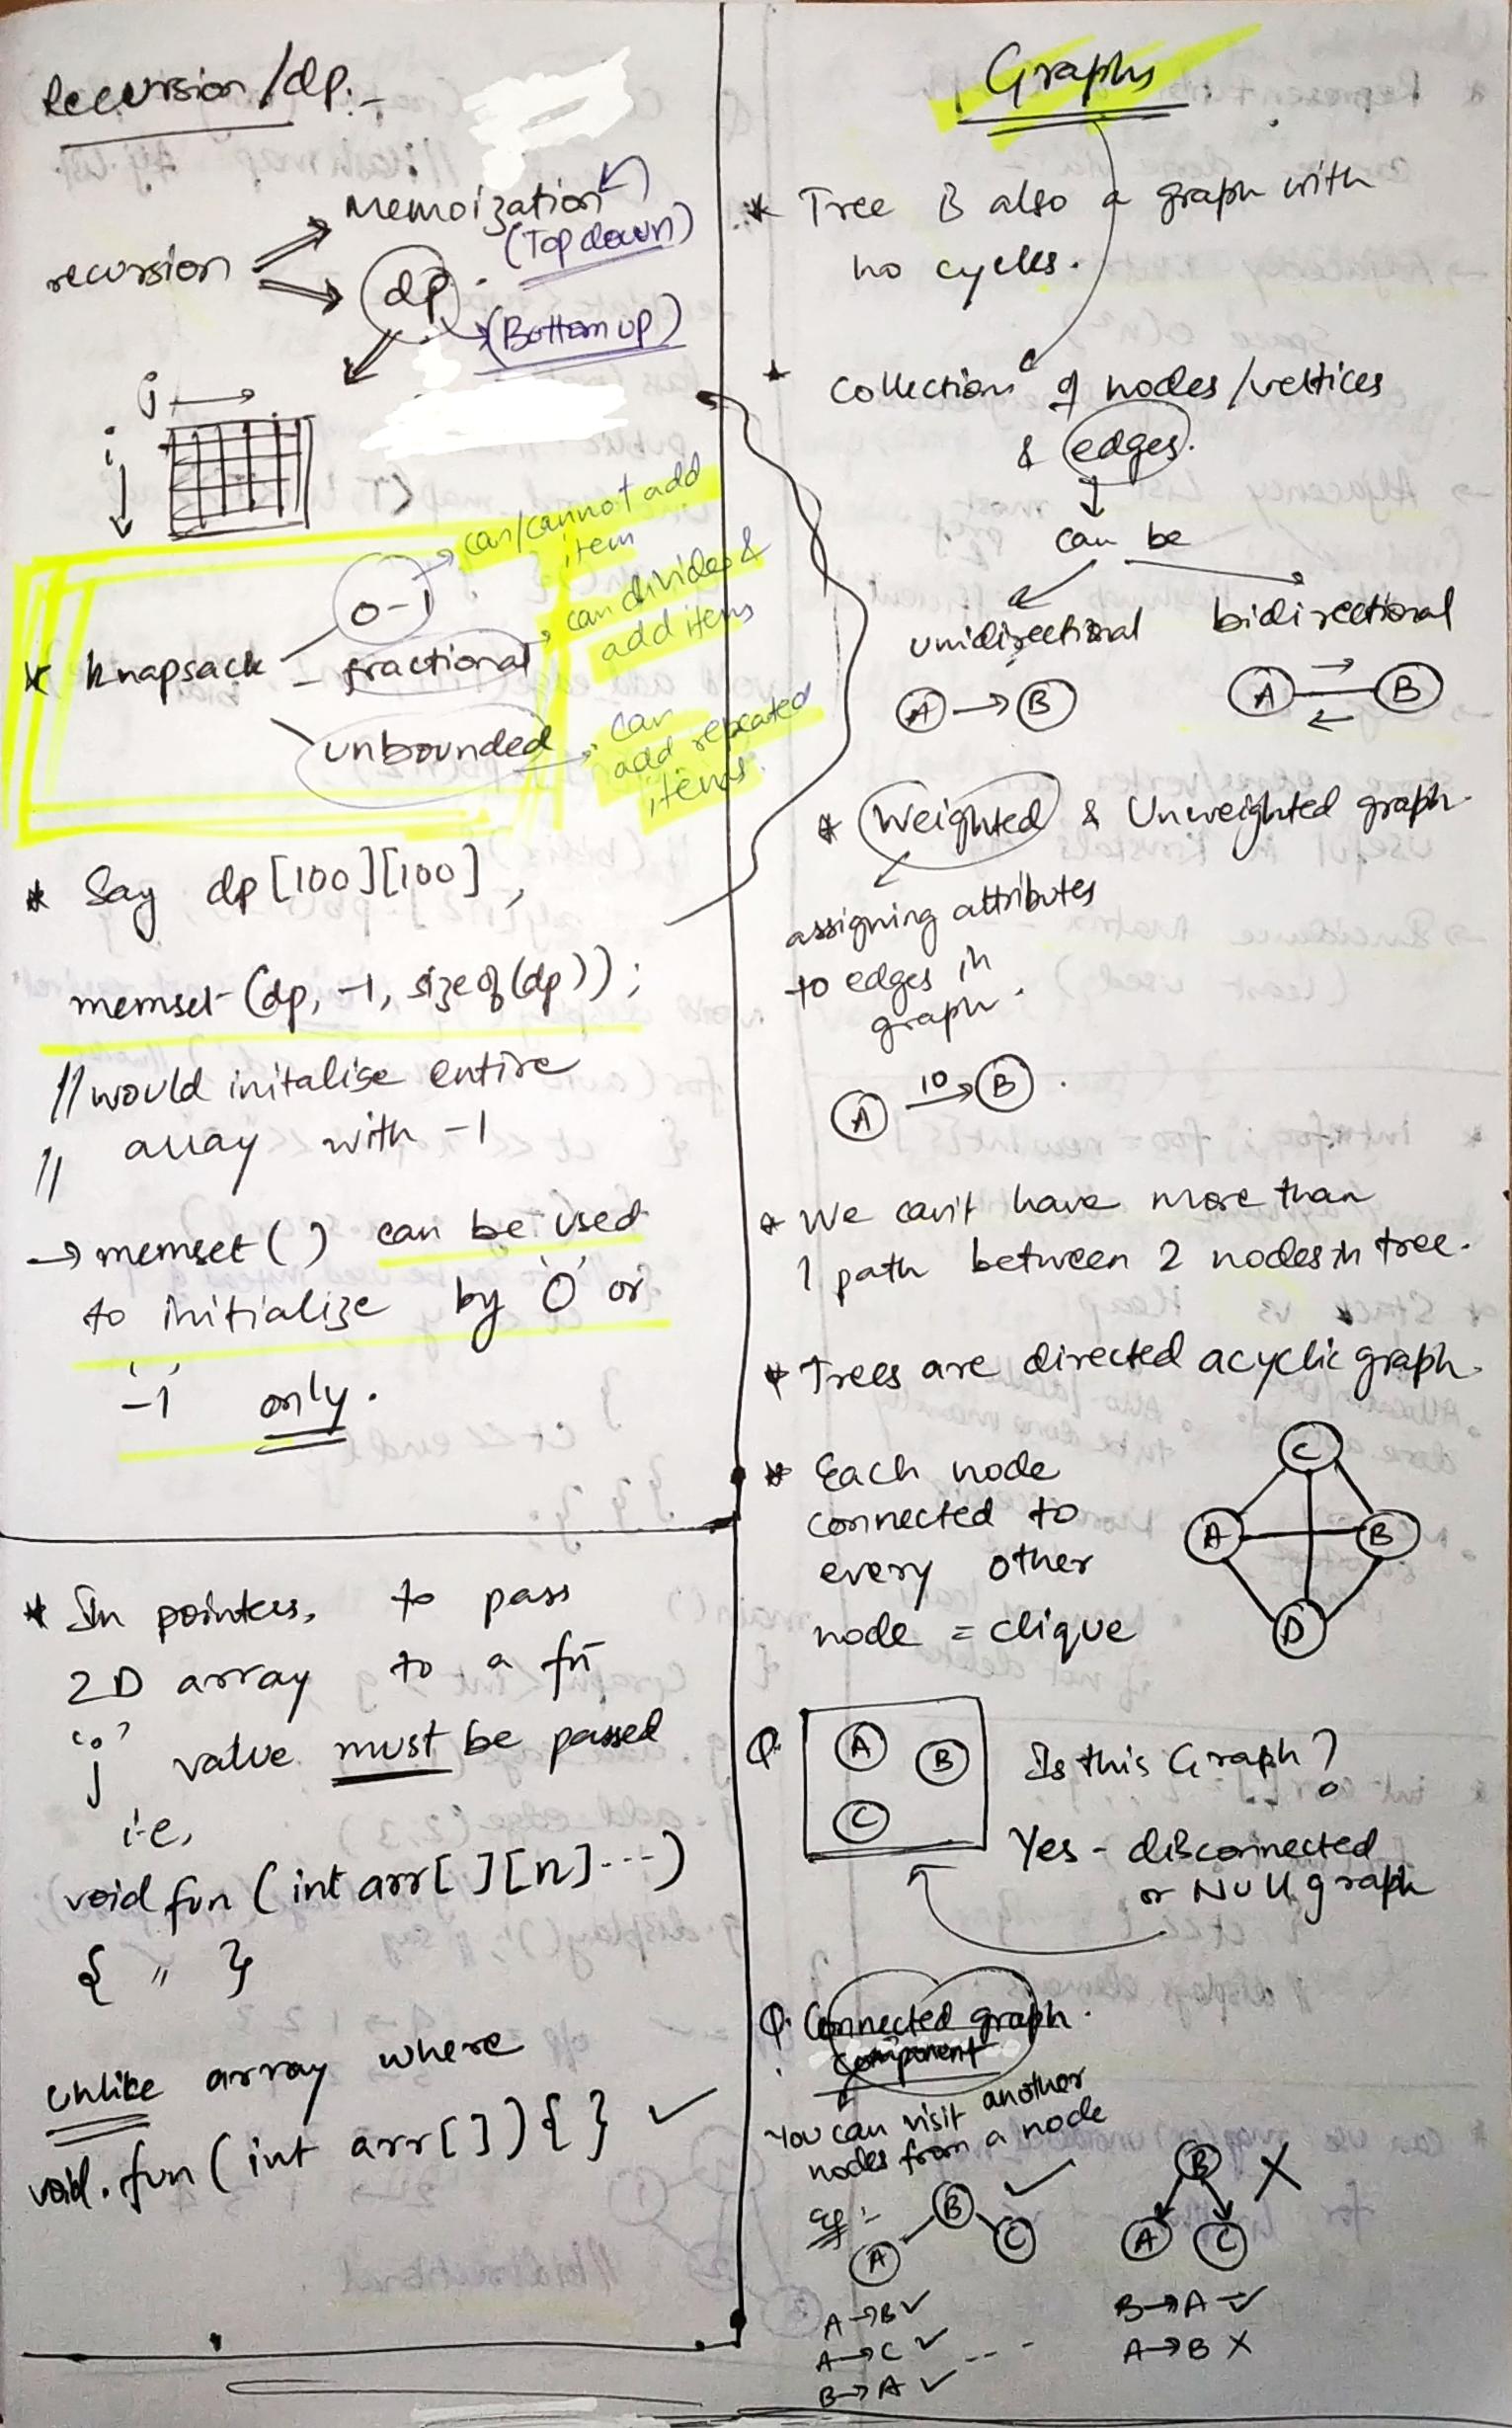 Recursion/dp:-
recursion
Memoization
(Top down)
dp.
(Bottom up)
j
i
* Knapsack
0-1
can/cannot add
item
fractional
can divide &
add items
unbounded
can
add repeated
items.
* Say dp[100][100],
memset(dp, -1, sizeof(dp));
// would initalise entire
// array with -1
→ memset() can be used
to initialize by '0' or
'-1' only.
* In pointers, to pass
2D array to a fn
'j' value must be passed
i.e,
void fun (int arr[][n]...)
{ " }
Unlike array where
void. fun (int arr[]) { } ✓
Graphs
* Tree is also a graph with
no cycles.
* Collection of nodes/vertices
& edges.
can be
unidirectional
bidirectional
A → B
A B
* Weighted & Unweighted graph.
assigning attributes
to edges in
graph.
A 10 B.
* We can't have more than
1 path between 2 nodes in tree.
* Trees are directed acyclic graph.
* Each node
connected to
every other
node = clique
C
A B
D
Q. A B
C
Is this Graph?
Yes - disconnected
or Null graph
Q. Connected graph.
component
You can visit another
nodes from a node
eg:-
B
A C
✓
B
A C
X
A→B ✓
A→C ✓ ---
B→A ✓
B→A ✓
A→B X